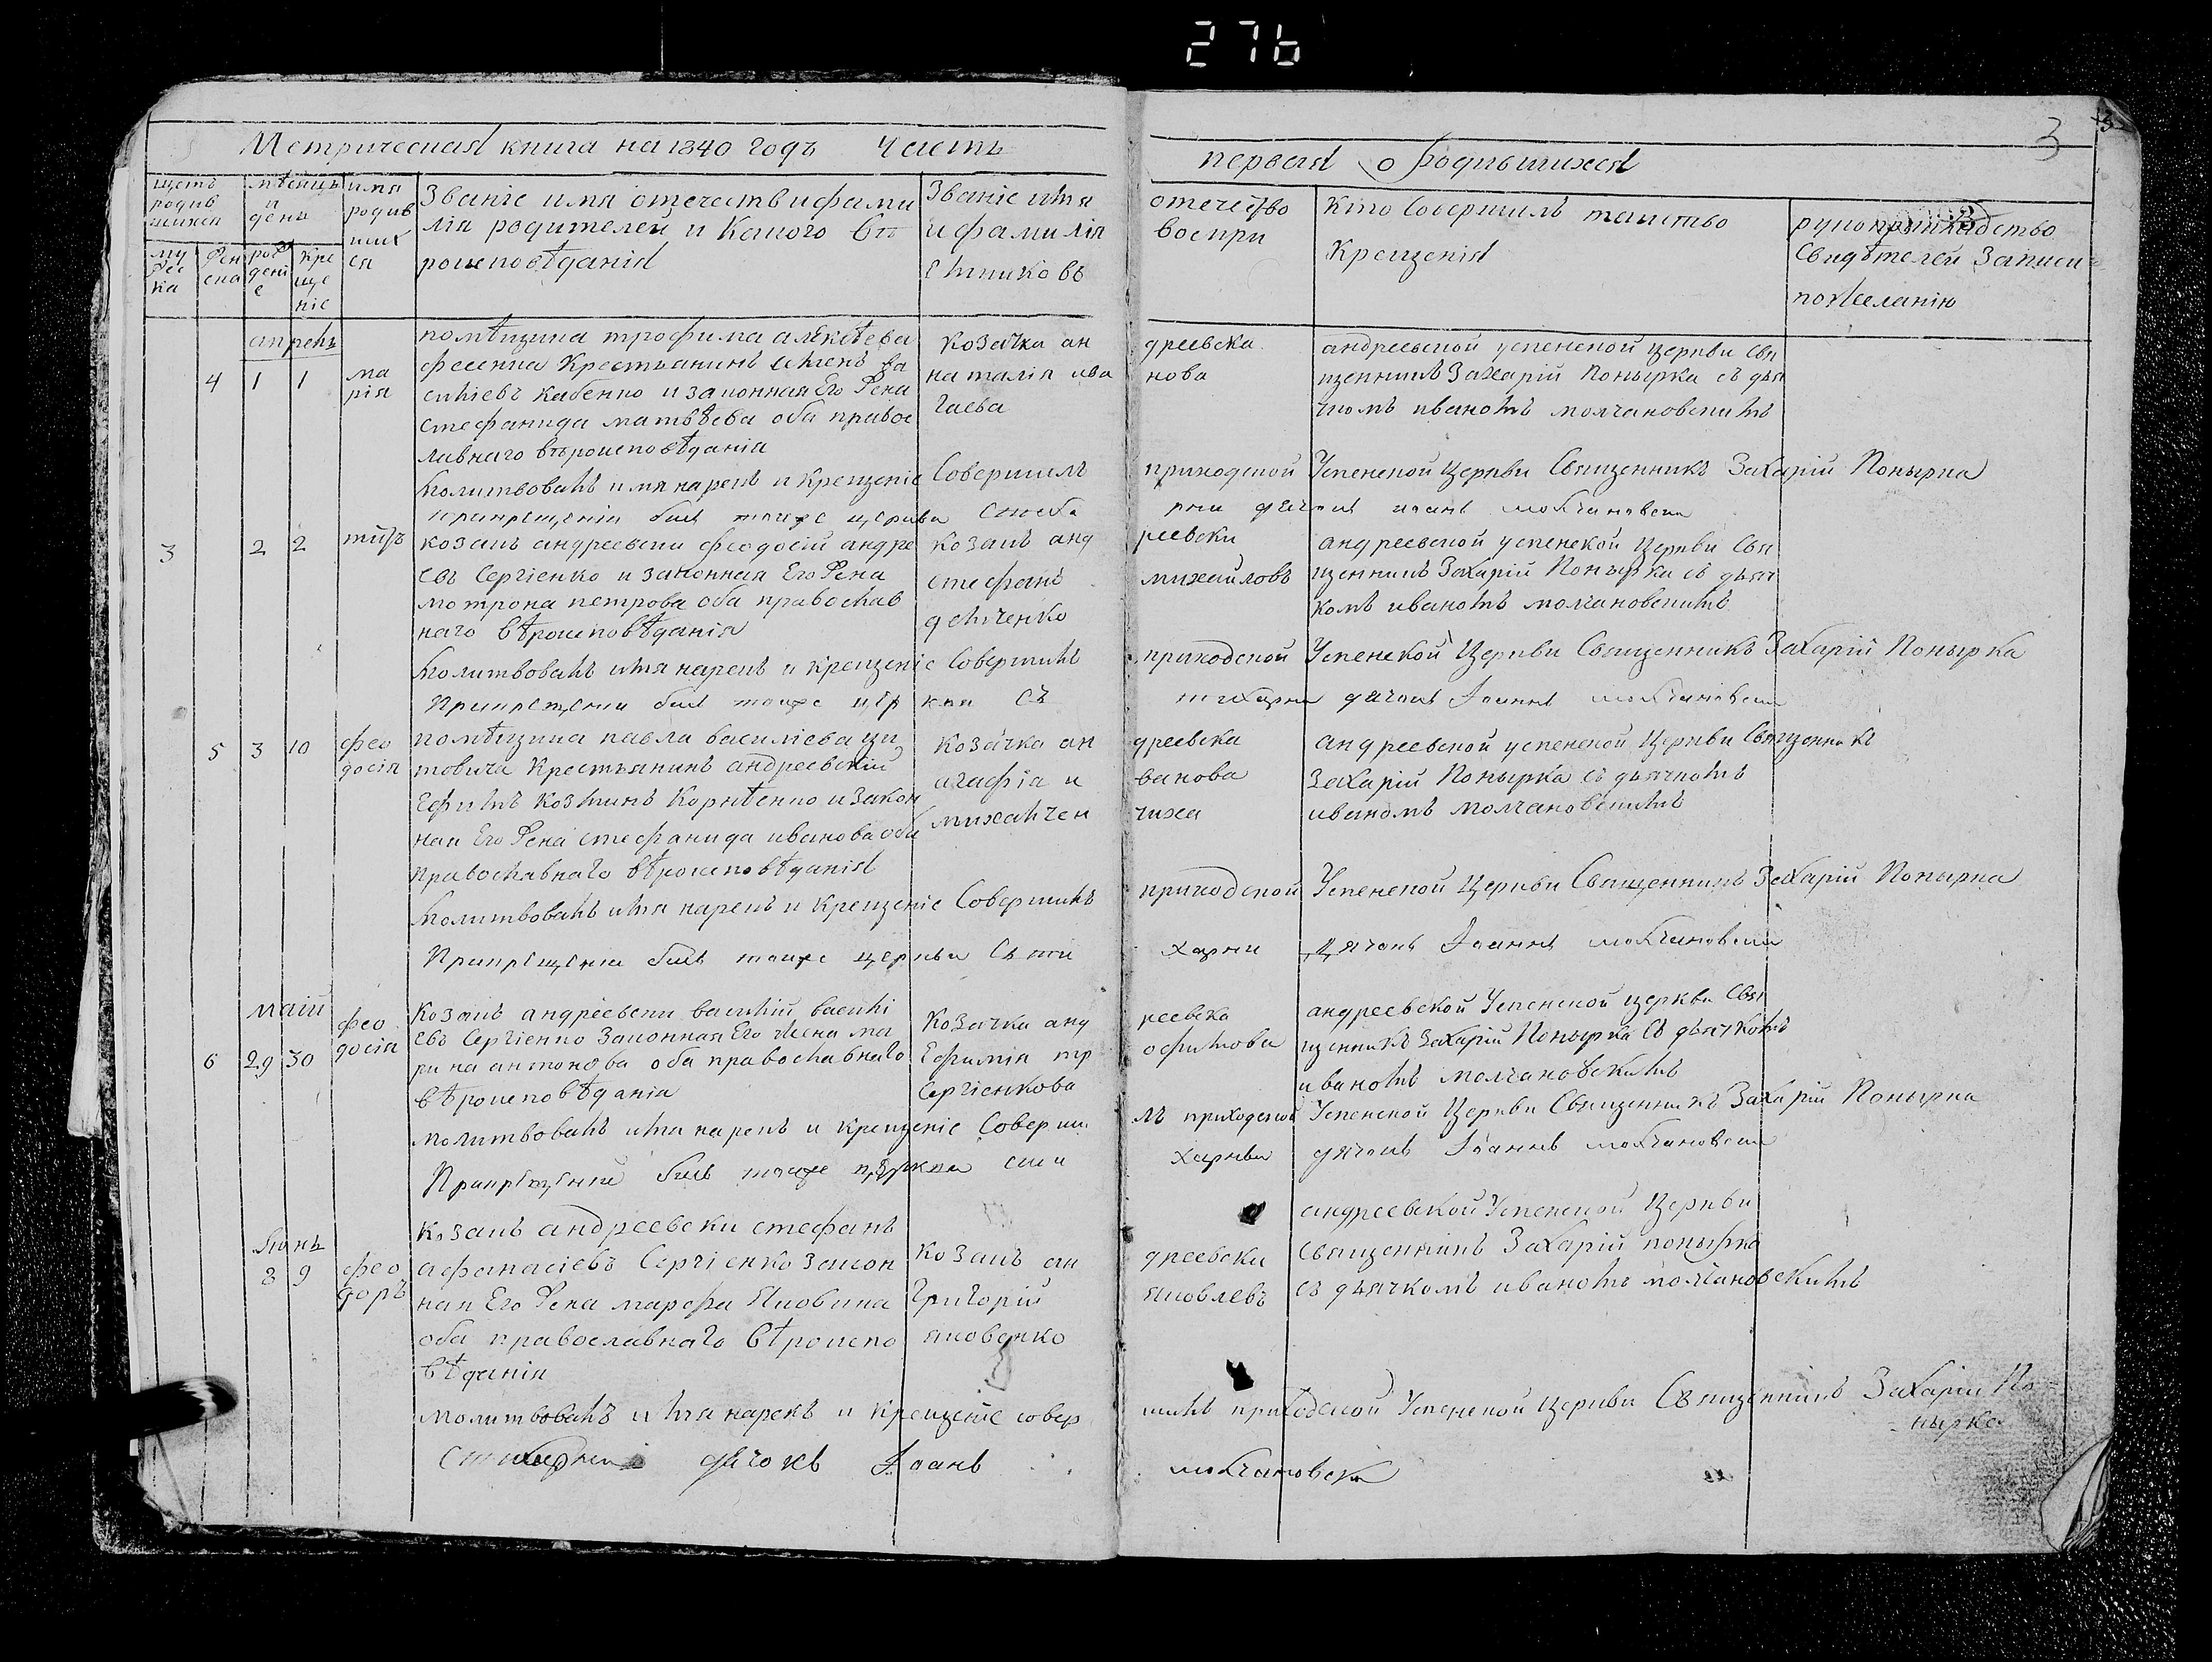 276
3
Метрическая книга на 1840 годъ Часть
первая о родившихся
щетъ родив шихся
мѣсяцъ и день
имя родив ших ся
Званіе имя отечеств и фами
лія родителей и Какого вѣ
роисповѣданія
Званіе имя
и фамилія
емниковъ
отечество
воспри
Кто Совершилъ таинство
Крещенія
рукоприкладство
Свидѣтелей Записи
пожеланію
му жес ка
жен ска
рож дені е
кре ще ніе
апрель
4 1 1 ма рія
помѣщика трофима алексѣева
фесенка Крестьянинъ семенъ ва
силіевъ кабенко и законная Его Жена
стефанида матвѣева оба правос
лавнаго вѣроисповѣданія
козачка ан дреевска
наталія ива нова
гаева
андреевской успенской церкви свя
щенникъ Захарій Понырка съ дья
чкомъ иваномъ молчановскимъ
молитвовалъ имя нарекъ и крещеніе Совершилъ приходской Успенской Церкви Священникъ Захарій Понырка
при крещеніи былъ тоиже церкви дячокъ иоанъ молчановски
3 2 2 титъ
козакъ андреевски феодосій андре
евъ Сергіенко и законная Его Жена
мотрона петрова оба православ
наго вѣроисповѣданія
козакъ анд реевски
стефанъ михайловъ
демченко
андреевской успенской Церкви Свя
щенникъ Захарій Понырка съ дьяч
комъ иваномъ молчановскимъ
молитвовалъ имя нарекъ и крещеніе Совершилъ приходской Успенской Церкви Священникъ Захарій Понырка
При крещени былъ тоиже церкви съ тихарни дячокъ Іоаннъ молчановски
5 3 10 фео досія
помѣщика павла василіева
товича Крестьянинъ андреевскій
Ефимъ козминъ Корнѣенко и закон
ная Его Жена стефанида иванова оба
православнаго вѣроисповѣданія
козачка ан дреевска
агафіа и ванова
михалчен чиха
андреевской успенской Церкви Священникъ
Захарій Понырка съ дьячкомъ
иваномъ молчановскимъ
молитвовалъ имя нарекъ и крещеніе Совершилъ приходской Успенской Церкви Священникъ Захарій Понырка
При крещеніи былъ тоиже церкви съ сти харни дячокъ Іоаннъ молчановски
маій
6 29 30 фео досія
Козакъ андреевски василій василі
евъ Сергіенко Законная Его жена ма
рина антонова оба православнаго
вѣроисповѣданія
Козачка анд реевска
Ефимія тр офимова
Сергіенкова
андреевской Успенской церкви Свя
щенникъ Захарій Понырка съ дьячкомъ
иваномъ молчановскимъ
молитвовалъ имя нарекъ и крещеніе Соверши лъ приходской Успенской Церкви Священникъ Захарій Понырка
При крещеніи былъ тоиже церкви сти харни дячокъ Іоаннъ молчановски
Іюнь
8 9 фео доръ
козакъ андреевски стефанъ
афанасіевъ Сергіенко закон
ная Его Жена марфа Яковина
оба православнаго вѣроиспо
вѣданія
козакъ ан дреевски
Григорій Яковлевъ
яковенко
андреевской Успенской Церкви
Священникъ Захарій понырка
съ дьячкомъ иваномъ молчановскимъ
молитвовалъ имя нарекъ и крещеніе совер шилъ приходской Успенской Церкви Священникъ Захарій По
нырка
Стихарни дячокъ Іоанъ молчановски